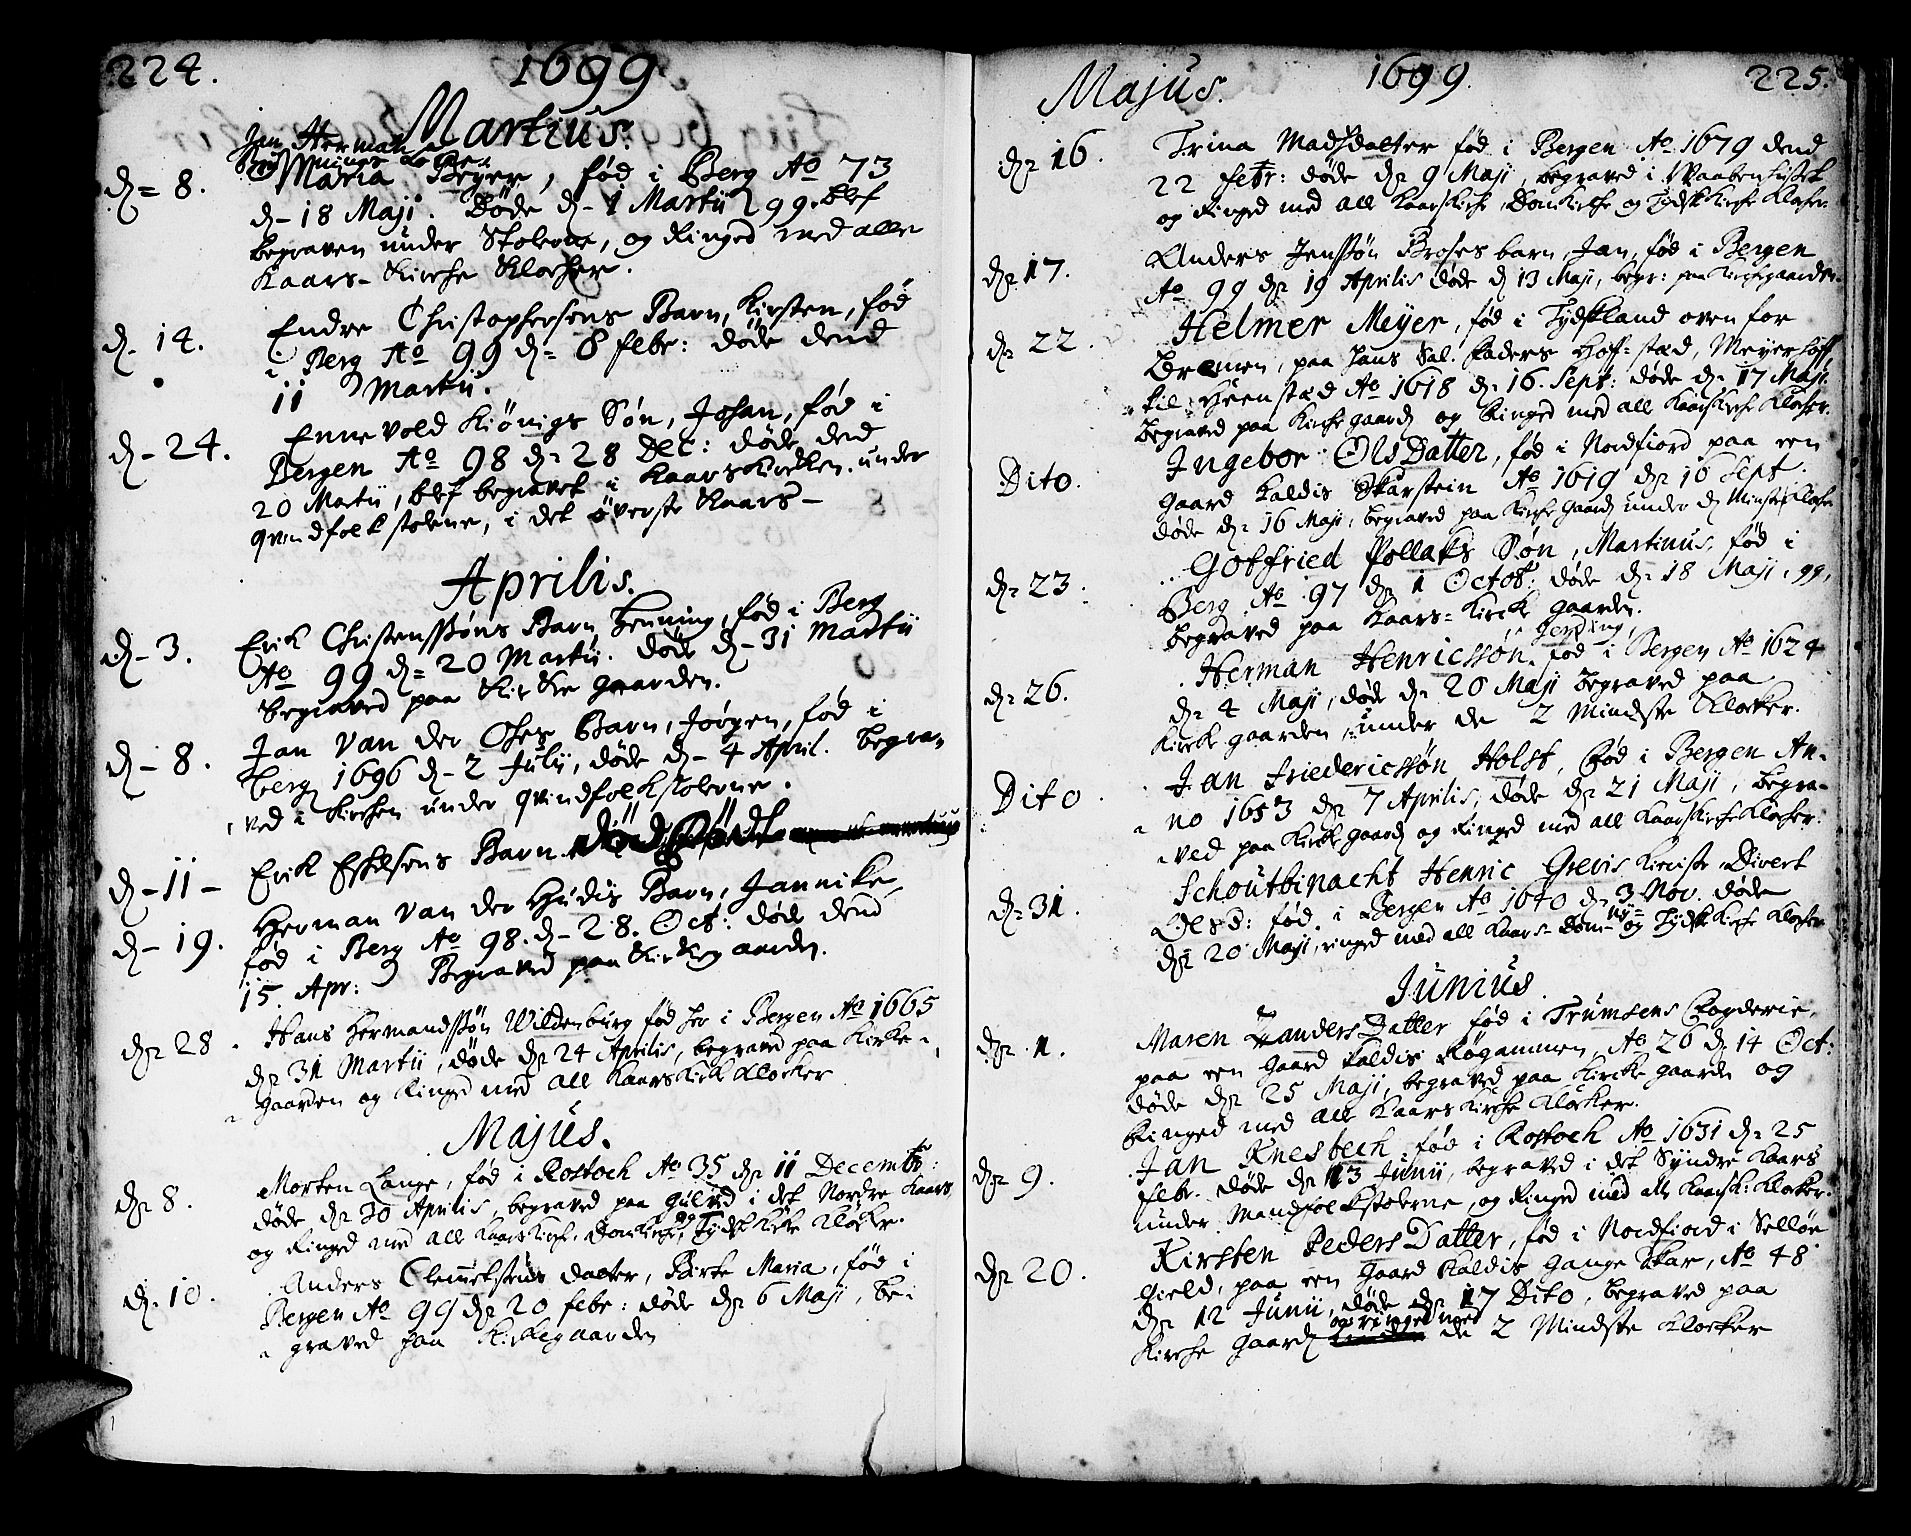 224.
1699
Martius.
Jan Herman
d= 8.
Maria Beyer, fød i Berg Ao 73
d- 18 Maji. døde d- 1 Martii 99. blef
begraven under Stolerne, og Ringed med alle
Kaars-Kirche Klocher.
d. 14.
Endre Christophersens Barn, Kirsten, fød
i Berg Ao 99 d= 8 febr: døde dend
11 Martii.
d- 24.
Ennevold Kiönigs Søn, Johan, fød i
Bergen Ao 98 d= 28 Dec: døde dend
20 Matii, blef begravet i Kaarskirken under
qvindfolk stolene, i det øverste Kaars-
Aprilis.
d- 3.
Erik Christenssøns Barn, Henning, fød i Berg
Ao 99 d= 20 Martii. døde d- 31 Martii
begraved paa Kirke gaarden.
d- 8.
Jan Van der Barn, Jørgen, fød i
berg 1696 d- 2 Julii, døde d- 4 April. begra-
ved i Kirchen under qvindfolkstolerne.
d- 11-
Erik Eskelsens Barn dødfød
d- 19.
Herman Van der Hudis Barn, Jannike,
fød i Berg Ao 98. d- 28. Oct: døde dend
15. Apr: Begraved paa Kirkegaarden.
d= 28.
Hans Hermandssøn Wildenburg fød her i Bergen Ao 1665
d= 31 Martii, døde d= 24 Aprilis, begraved paa Kirke-
gaarden og Ringed med all Kaarskirk Klocker
Majus.
d= 8.
Morten Lange, fød i Rostoch Ao 35 d= 11 Decembr:
døde d= 30 Aprilis, begraved paa gulved i det Nordre Kaars,
og Ringed med all Kaarskirk, Domkirche, og Tydsk Kirke Klocker.
d= 10.
Anders datter, Birte Maria, fød i
Bergen Ao 99 d= 20 febr: døde d= 6 Maji, be-
graved paa Kirkegaarden
Majus.
1699.
225.
d= 16.
Trina Madsdatter fød i Bergen Ao 1679 dend
22 febr: døde d= 9 Maji, begraved i Vaabenhuset
og Ringed med all Kaarskirche, Domkirche og Tydsk Kirche Klocher.
d= 17.
Anders Jenssøn Broses barn, Jan, fød i Bergen
Ao 99 d= 19 Aprilis døde d 13 Maji, begr: paa Kirchegaarden.
d= 22.
Helmer Meyer, fød i Tydskland oven for
Bremen, paa hans Sal. faders Hoff-stæd, Meyerhoff,
til Ao 1618 d= 16. Sept: døde d= 17 Maji.
begraved paa Kirchegaard og Ringed med all Kaarskirche Klocher.
Dito.
Ingebor OlsDatter, fød i Nordfiord paa een
gaard kaldis Skarstein Ao 1619 d= 16 Sept.
døde d= 16 Maji, begraved paa Kirche gaard under d Minste Klocher
d= 23.
Gotfried Pollaks Søn, Martinus, fød i
Berg Ao 97 d= 1 Octob: døde d= 18 Maji, 99,
begraved paa Kaars-Kirck gaarden.
Jerding,
d= 26.
Herman Henricssøn, fød i Bergen Ao 1624
d= 4 Maji, døde d= 20 Maji begraved paa
Kirck gaarden, under de 2 Mindste Klocker.
Dito
Jan Friedericssøn Holst, fød i Bergen An-
no 1653 d= 7 Aprilis, døde d= 21 Maji, begra-
ved paa Kirck gaard og Ringed med all Kaarskirche Klocher.
d= 31.
Schoutbinacht Henric Grevis Kieriste Divert
OlesD: fød i Bergen Ao 1640 d= 3 Nov. døde
d= 20 Maji, ringed med all Kaars- Dom- Ny- og Tydsk Kirche Klocher
Junius.
d= 1.
Maren ZandersDatter fød i Trumsens Fogderie,
paa een gaard kaldis Røgammen, Ao 20 d 14 Oct:
døde d= 25 Maji, begraved paa Kircke gaarde og
Ringed med all Kaars Kirche Klocker.
d= 9.
Jan Knesbech, fød i Rostoch Ao 1631 d= 25
febr. døde d= 13 Junii, begraved i det Syndre Kaars
under Mandfolkstolerne, og Ringed med all Kaarsk: Klocker.
d= 20.
Kirsten PedersDatter, fød i Nordfiord i Selløe
gield, paa een gaard kaldis Gange Skar, Ao 48
d= 12 Junii, døde d= 17 Dito, begraved paa
og ringed med
Kirche gaard de 2 Mindste Klocker